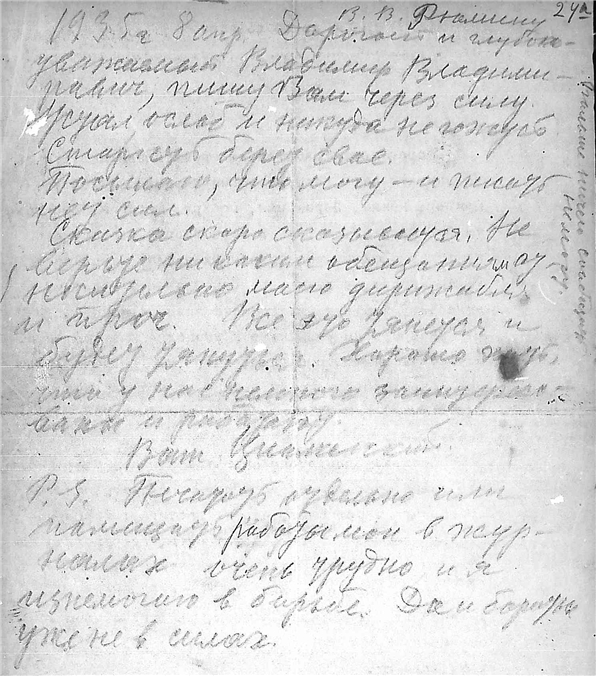 В. В. Рюмину
24
1935 г 8 апр. Дорогой и глубоко-
уважаемый Владимир Владими-
рович, пишу Вам через силу.
Устал, ослаб и никуда не гожусь
Старость берет свое.
Посылаю, что могу – и писать
нет сил.
Сказка скоро сказывается. Не
верьте никаким обещаниям
носительно моего дирижабля
и проч. Все это тянется и
будет тянуться. Хорошо хоть,
что у нас немного заинтересо-
ваны и работают.
Ваш Циолковский.
P.S. Печатать отдельно или
помещать работы мои в жур-
налах очень трудно и я
изнемогаю в борьбе. Да и бороться
уже не в силах.
Больше ничего сообщить
не могу.